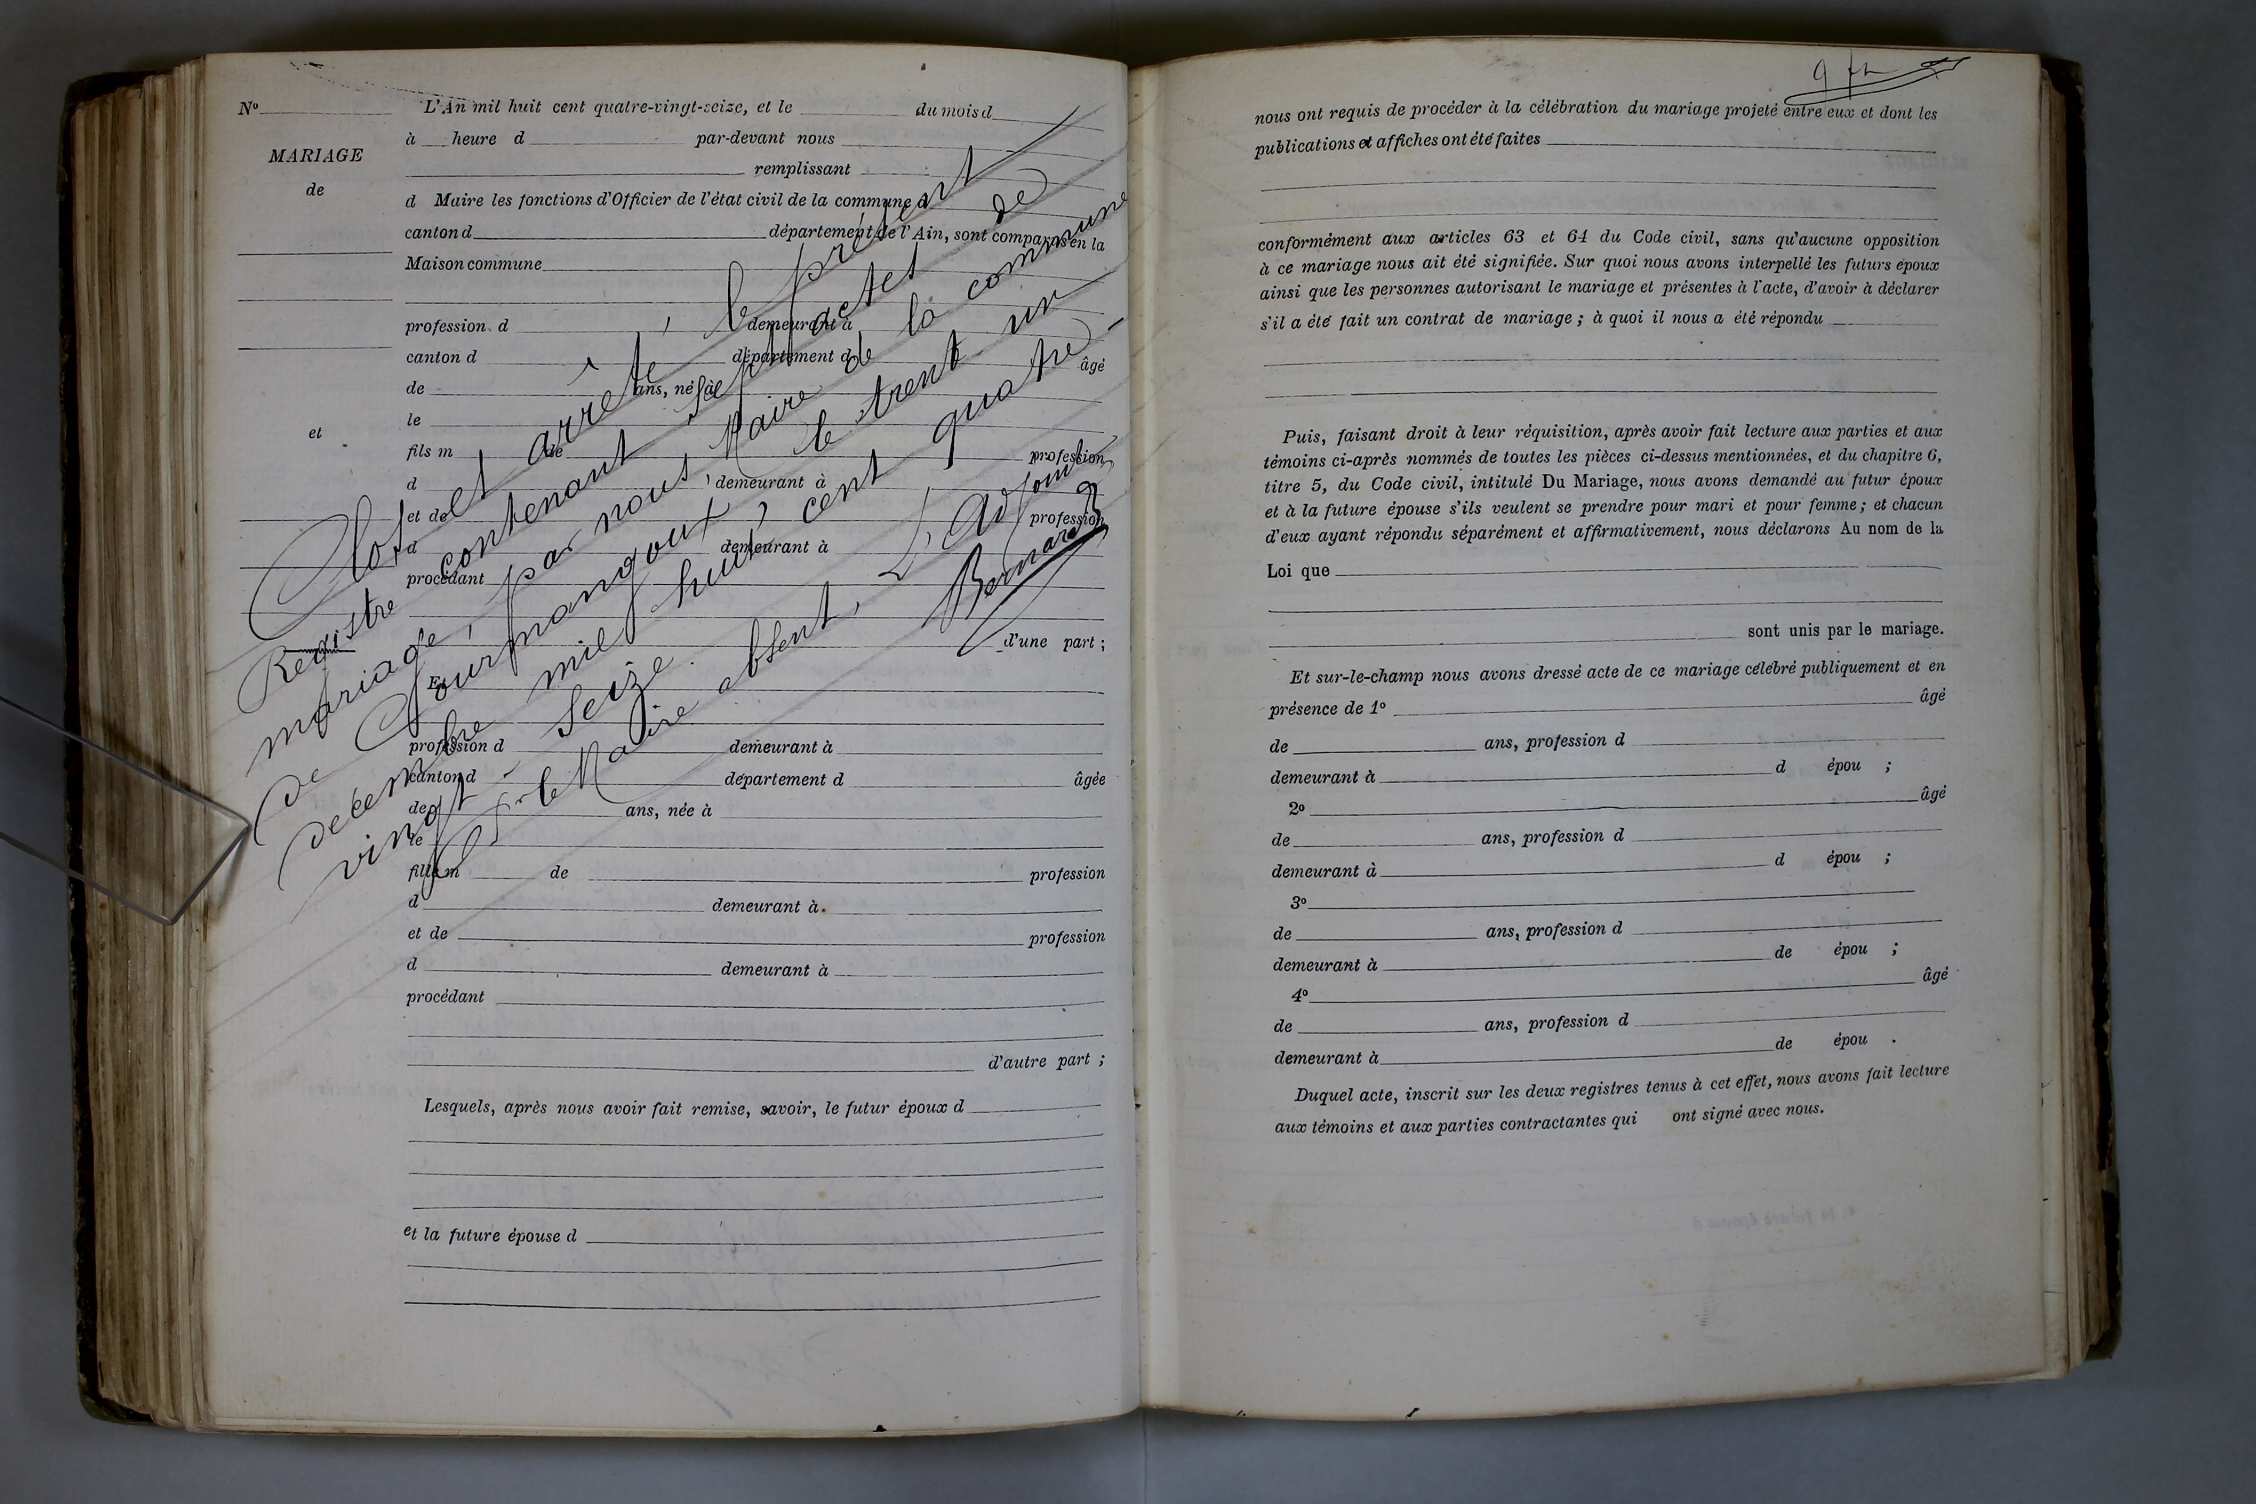 N° L'An mil huit cent quatre-vingt-seize, et le du mois d
MARIAGE
de
et
à heure d par-devant nous
remplissant
d Maire les fonctions d'Officier de l'état civil de la commune d
canton d département de l'Ain, sont comparus en la
Maison commune
profession d demeurant à
canton d département d âgé
de ans, né à
le
fils m de profession
d demeurant à
et de profession
d demeurant à
procédant
d'une part ;
Et
profession d demeurant à
canton d département d âgée
de ans, née à
le
fille m de profession
d demeurant à
et de profession
d demeurant à
procédant
d'autre part ;
Lesquels, après nous avoir fait remise, savoir, le futur époux d
et la future épouse d
Clos et arrêté, le présent
Registre contenant sept actes de
mariage, par nous, Maire de la commune
de Courmangoux, le trente un
décembre mil huit cent quatre-
vingt-seize.
Pr le Maire absent, L'Adjoint
Bernard
nous ont requis de procéder à la célébration du mariage projeté entre eux et dont les
publications et affiches ont été faites
conformément aux articles 63 et 64 du Code civil, sans qu'aucune opposition
à ce mariage nous ait été signifiée. Sur quoi nous avons interpellé les futurs époux
ainsi que les personnes autorisant le mariage et présentes à l'acte, d'avoir à déclarer
s'il a été fait un contrat de mariage ; à quoi il nous a été répondu
Puis, faisant droit à leur réquisition, après avoir fait lecture aux parties et aux
témoins ci-après nommés de toutes les pièces ci-dessus mentionnées, et du chapitre 6,
titre 5, du Code civil, intitulé Du Mariage, nous avons demandé au futur époux
et à la future épouse s'ils veulent se prendre pour mari et pour femme ; et chacun
d'eux ayant répondu séparément et affirmativement, nous déclarons Au nom de la
Loi que
sont unis par le mariage.
Et sur-le-champ nous avons dressé acte de ce mariage célébré publiquement et en
présence de 1° âgé
de ans, profession d
demeurant à d épou ;
2° âgé
de ans, profession d
demeurant à d épou ;
3°
de ans, profession d
demeurant à de épou ;
4° âgé
de ans, profession d
demeurant à de épou .
Duquel acte, inscrit sur les deux registres tenus à cet effet, nous avons fait lecture
aux témoins et aux parties contractantes qui ont signé avec nous.